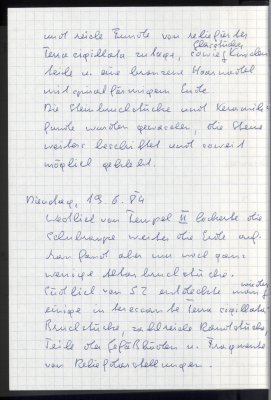 und reiche Funde von reliefierter
Terra sigillata zutage, sowie Glasstücke,
teile u. eine bronzene Haarnadel
mit spiralförmigem Ende.
Die Steinbruchstücke und Keramik-
funde wurden gewaschen, die Steine
weiters beschriftet und soweit
möglich geklebt.
Dienstag, 19. 6. 84
Westlich von Tempel II lockerte die
Schubraupe weiter die Erde auf.
Man fand aber nur noch ganz
wenige Altarbruchstücke.
Südlich von S2 entdeckte man wieder
einige interessante Terra sigillata-
Bruchstücke, zahlreiche Randstücke
Teile der Gefäßböden u. Fragmente
von Reliefdarstellungen.